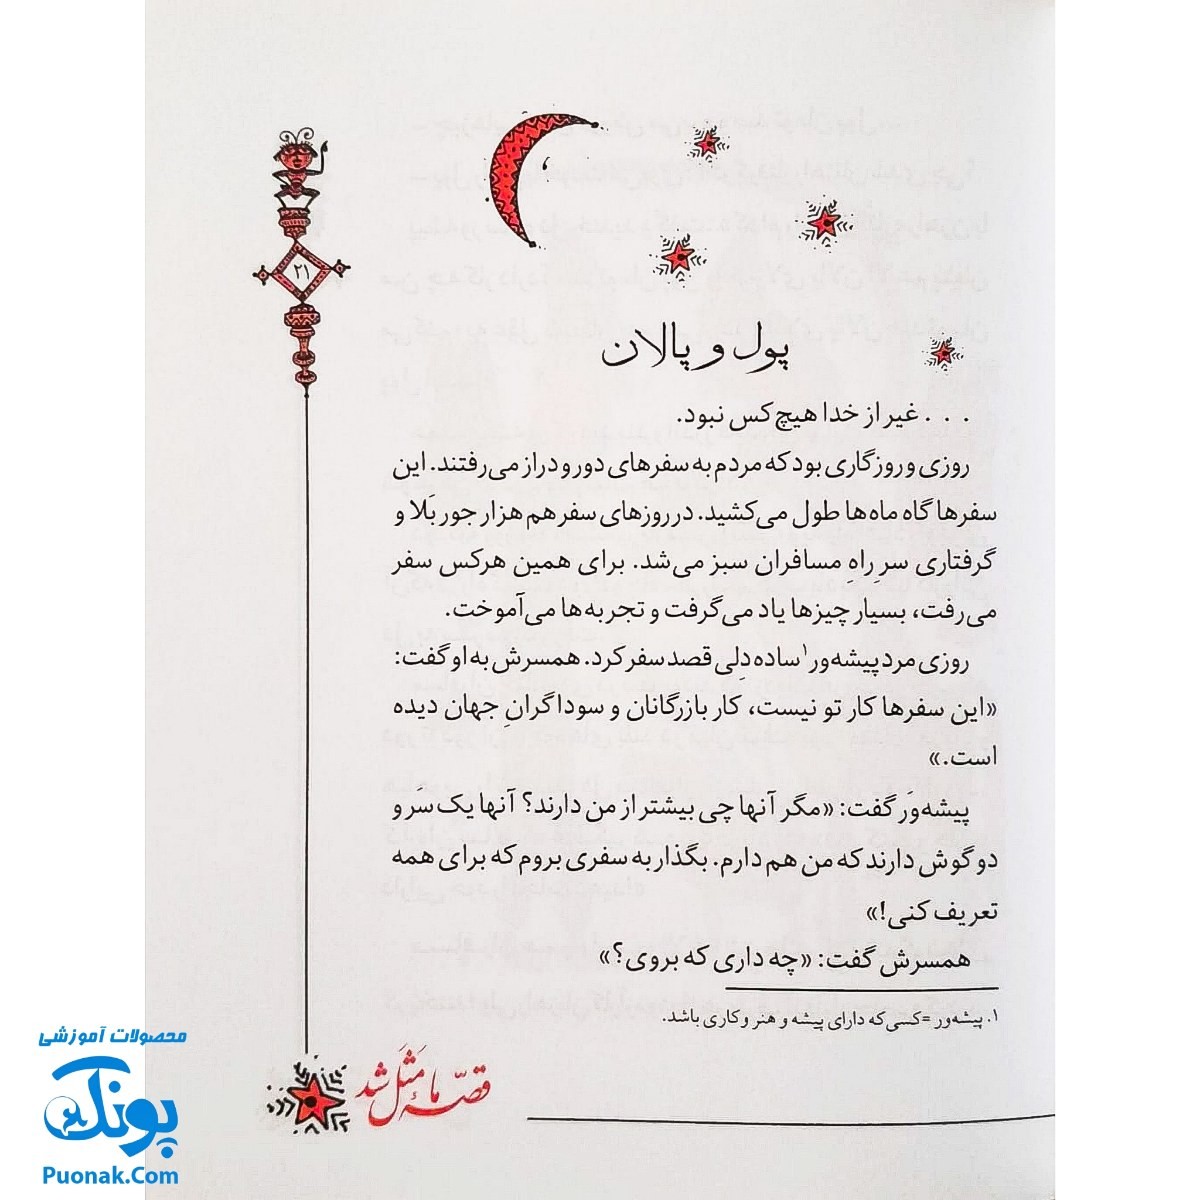 ۲۱
پول و پالان
. . . غیر از خدا هیچ‌کس نبود.
روزی و روزگاری بود که مردم به سفرهای دور و دراز می‌رفتند. این
سفرها گاه ماه‌ها طول می‌کشید. در روزهای سفر هم هزار جور بَلا و
گرفتاری سرِ راهِ مسافران سبز می‌شد. برای همین هرکس سفر
می‌رفت، بسیار چیزها یاد می‌گرفت و تجربه‌ها می‌آموخت.
روزی مرد پیشه‌ور۱ ساده‌دِلی قصد سفر کرد. همسرش به او گفت:
«این سفرها کار تو نیست، کار بازرگانان و سوداگرانِ جهان دیده
است.»
پیشه‌وَر گفت: «مگر آنها چی بیشتر از من دارند؟ آنها یک سَر و
دو گوش دارند که من هم دارم. بگذار به سفری بروم که برای همه
تعریف کنی!»
همسرش گفت: «چه داری که بروی؟»
۱. پیشه‌ور =کسی که دارای پیشه و هنر و کاری باشد.
قصّهٔ ما مَثَل شد
محصولات آموزشی
پونک
Puonak.Com